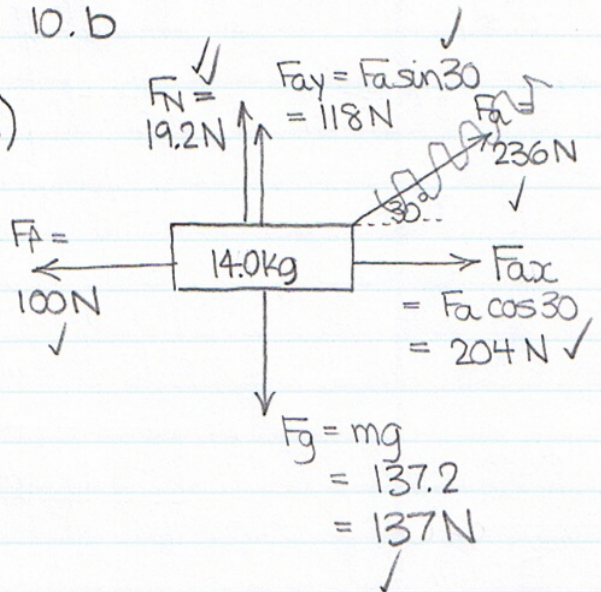 10.b
)
FN =
19.2N
Fay = Fa sin30
= 118N
Fa =
236N
30°
Ff =
100N
14.0kg
Fax
= Fa cos30
= 204N
Fg = mg
= 137.2
= 137N